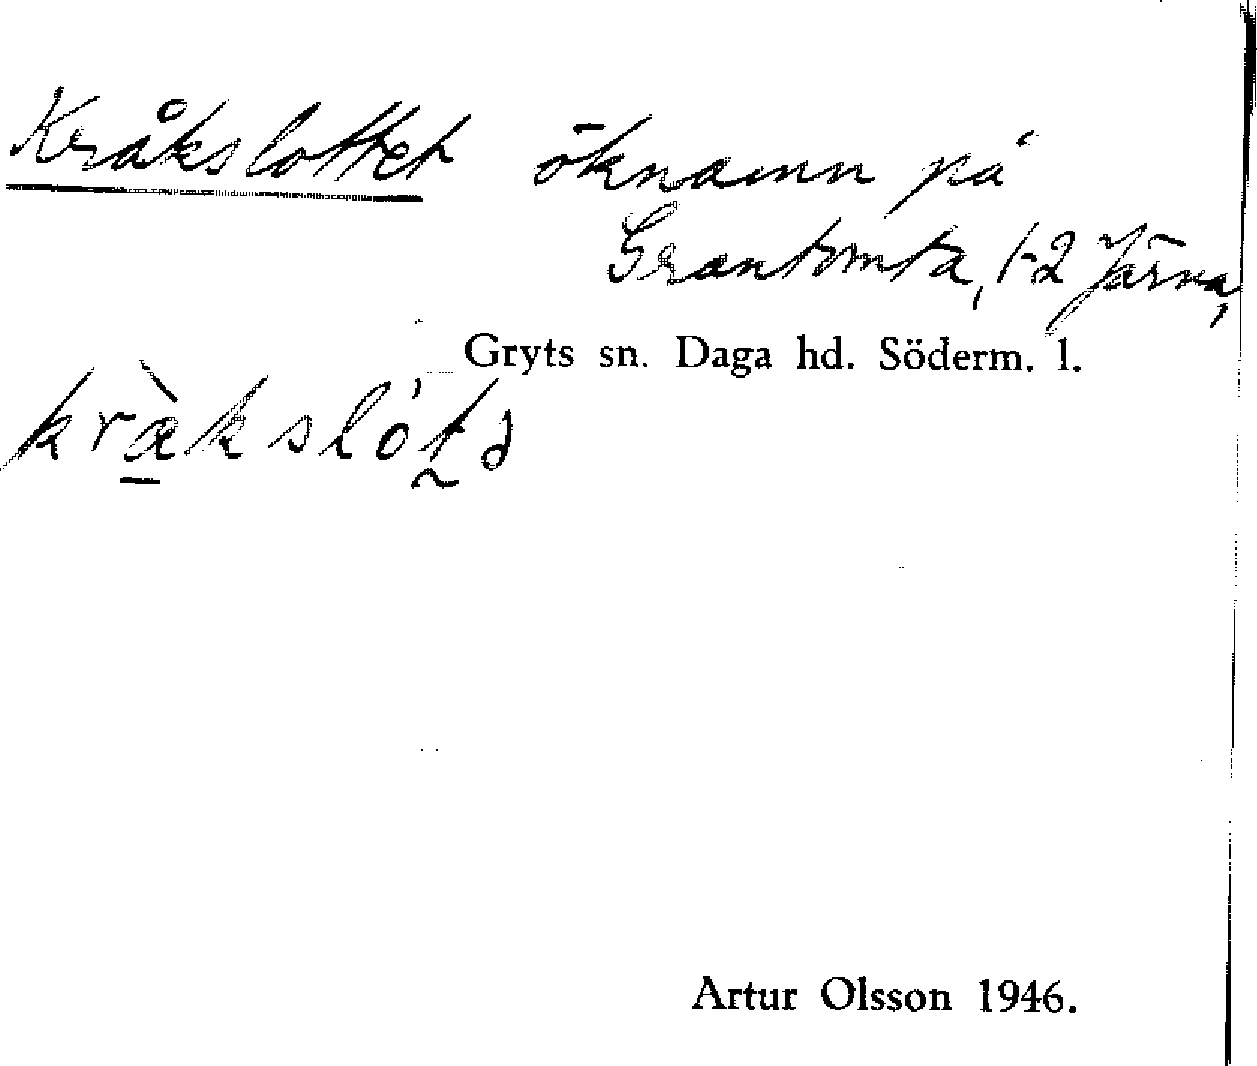 Kråkslottet öknamn på
Grantomta, 1-2 Järna,
Gryts sn. Daga hd. Söderm. l.
Artur Olsson 1946.